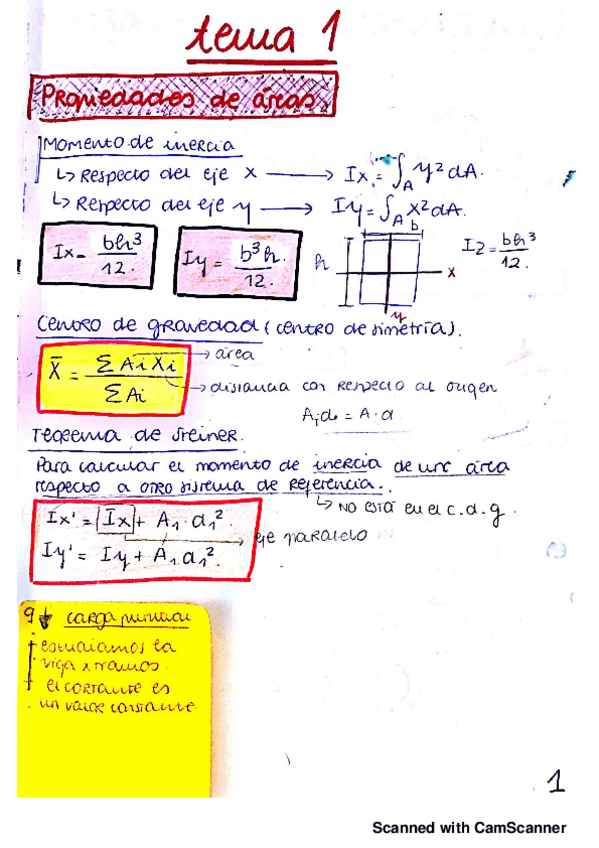 tema 1
Propiedades de áreas.
Momento de inercia
↳ Respecto del eje x → Ix = ∫_A y² dA.
↳ Respecto del eje y → Iy = ∫_A x² dA.
Ix = bh³/12.
Iy = b³h/12.
b
h
x
y
Iz = bh³/12.
Centro de gravedad (centro de simetría).
X̄ = ΣAi Xi / ΣAi
→ área
→ distancia con respecto al origen
Teorema de Steiner.
Para calcular el momento de inercia de una área
respecto a otro sistema de referencia.
↳ No está en el c.d.g.
Ix' = Ix + A₁·d₁².
Iy' = Iy + A₁d₁².
eje paralelo
q↓ carga puntual
estudiamos la
viga x tramos.
el cortante es
un valor constante
1
Scanned with CamScanner